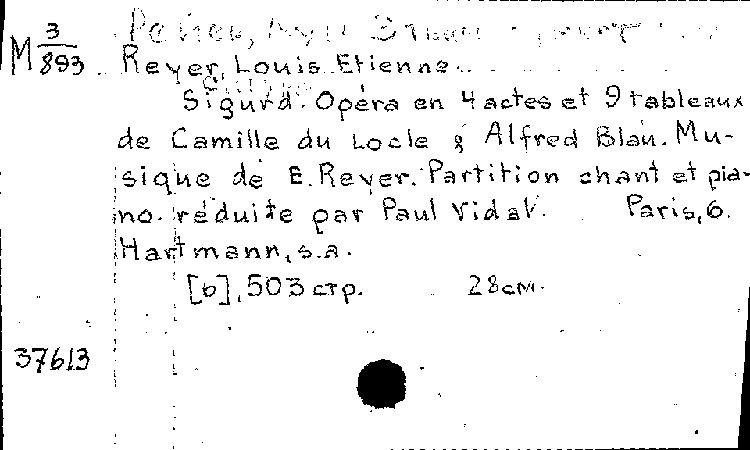 M 3/893
Reyer, Louis Etienne.
Sigurd. Opéra en 4 actes et 9 tableaux
de Camille du Locle & Alfred Blau. Mu-
sique de E. Reyer. Partition chant et pia-
no. réduite par Paul Vidal. Paris, G.
Hartmann, s.a.
[6], 503 стр. 28 см.
37613